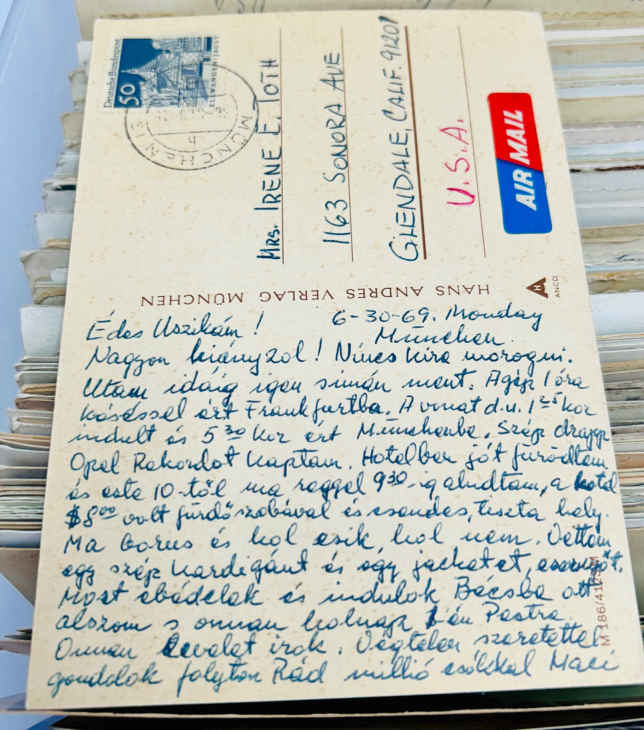 Deutsche Bundespost
50
ELLWANGEN/JAGST
MÜNCHEN
Mrs. IRENE E. TOTH
1163 SONORA AVE
GLENDALE, CALIF. 91201
U.S.A.
AIR MAIL
HANS ANDRES VERLAG MÜNCHEN
ANCO
Édes Uszikám! 6-30-69. Monday
München.
Nagyon hiányzol! Nincs kire morogni.
Utam idáig igen simán ment. A gép 1 óra
késéssel ért Frankfurtba. A vonat d.u. 1 25 kor
indult és 5 30 kor ért Münchenbe. Szép drapp
Opel Rekordot kaptam. Hotelben jót fürödtem
és este 10-től ma reggel 9 30-ig aludtam, a hotel
$8 00 volt fürdőszobával és csendes, tiszta hely.
Ma borus és hol esik, hol nem. Vettem
egy szép kardigánt és egy jachetet,
Most ebédelek és indulok Bécsbe ott
alszom s onnan holnap Pestre
Onnan levelet irok. Végtelen szeretettel
gondolok folyton Rád millió csókkal Maci
M 186/41